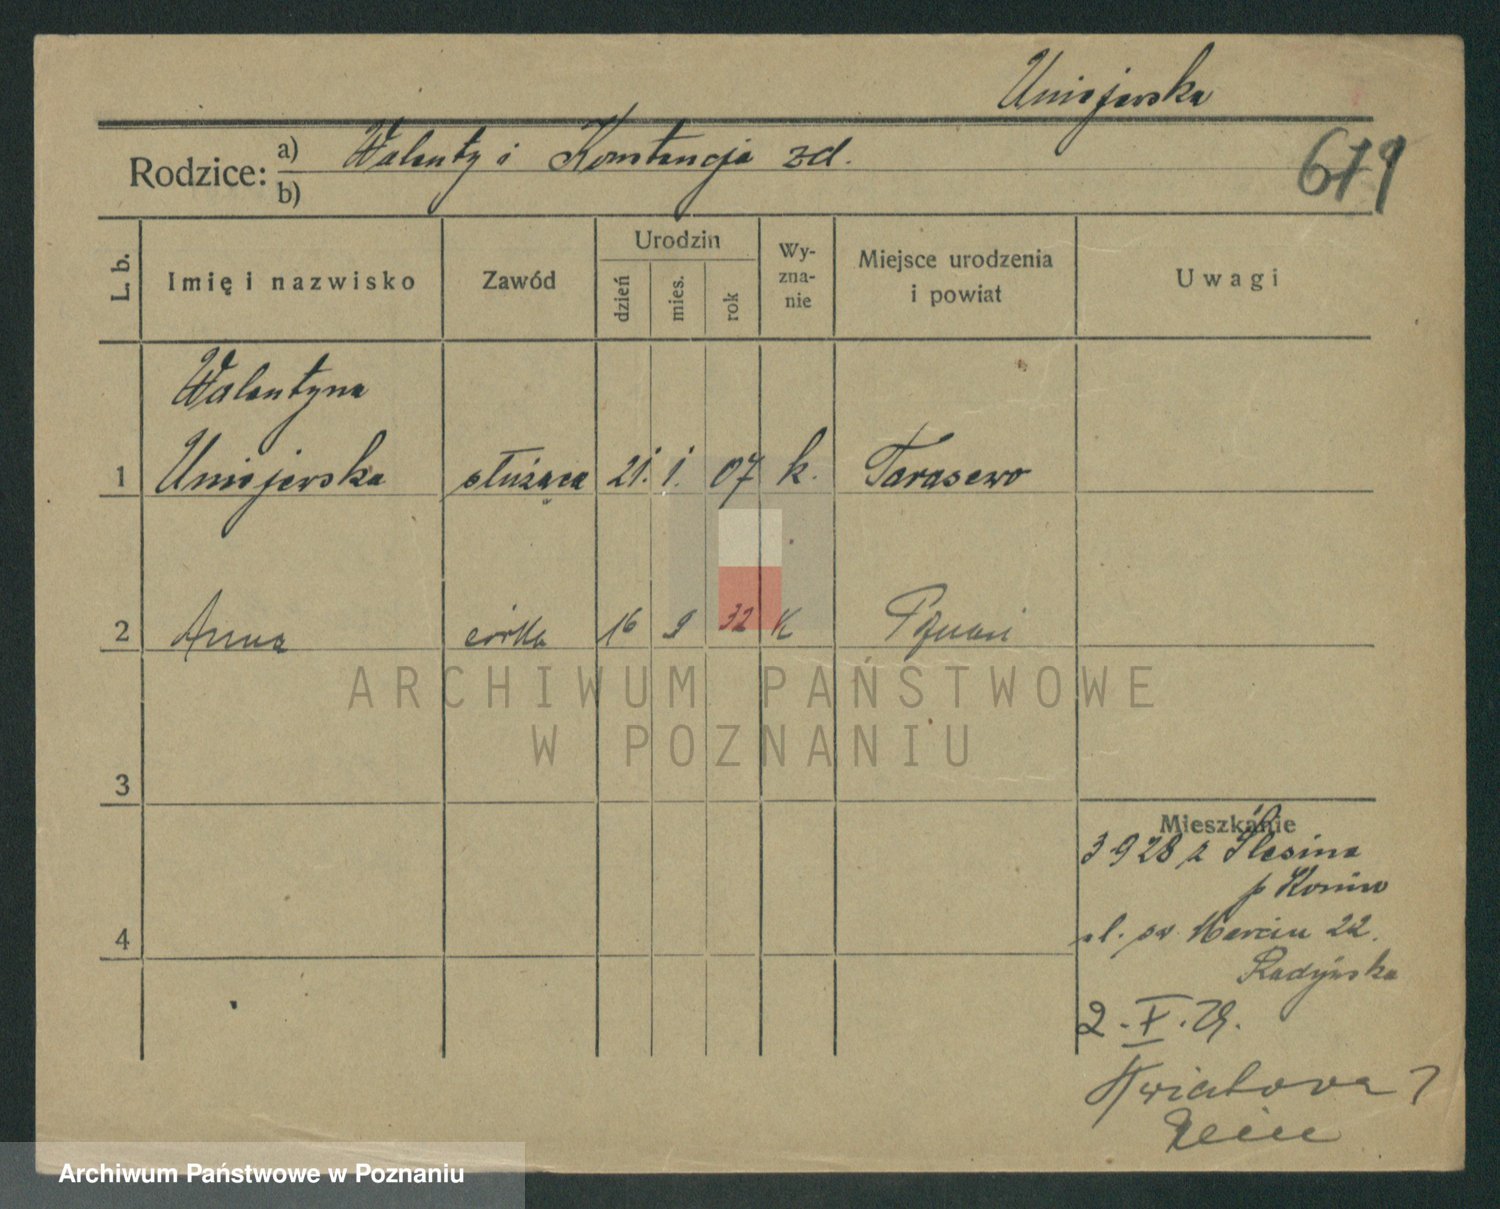 Uniejewska
Rodzice: a) Walenty i Konstancja zd.
b)
619
L. b.
Imię i nazwisko
Zawód
Urodzin
dzień
mies.
rok
Wy-
zna-
nie
Miejsce urodzenia
i powiat
Uwagi
Walentyna
1 Uniejewska służąca 21. 1. 07 k. Tarasewo
2 Anna córka 16 9 32 K Poznań
ARCHIWUM PAŃSTWOWE
W POZNANIU
3
Mieszkanie
3 9 28 z Ślesina
p Konin
4
ul. św. Marcin 22.
2. V. 29.
Kwiatowa 7
Archiwum Państwowe w Poznaniu